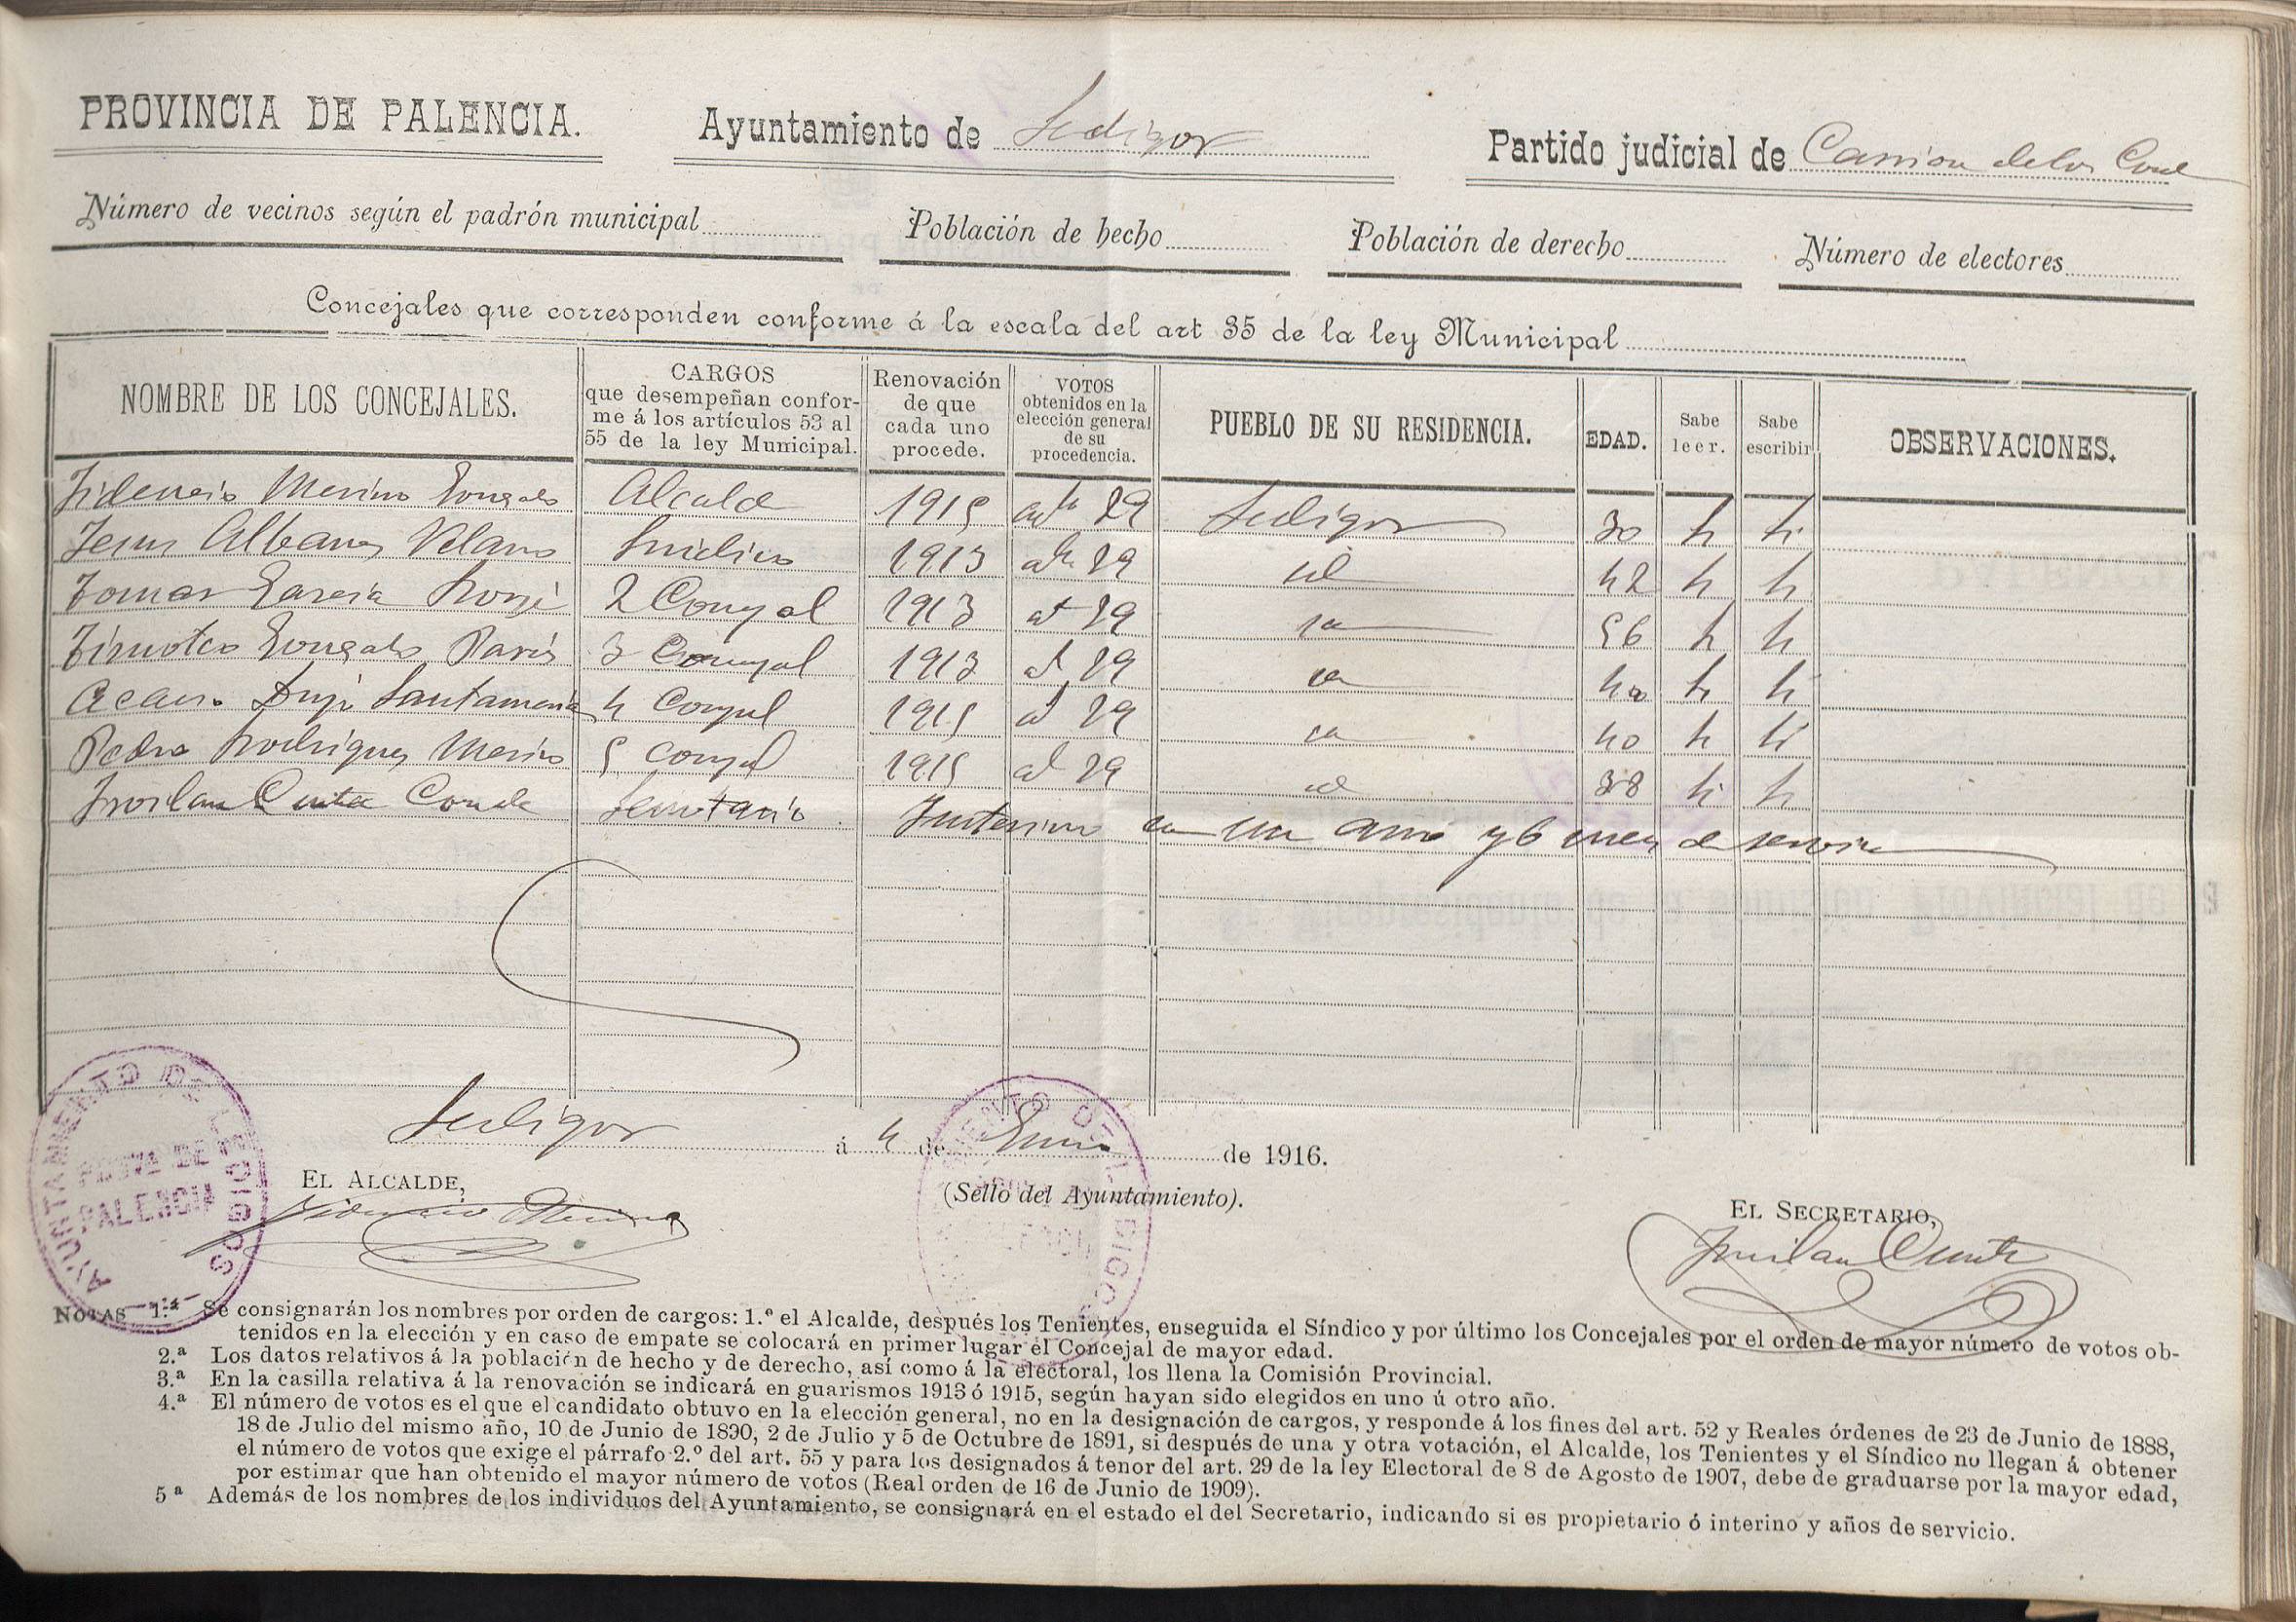 PROVINCIA DE PALENCIA.
Ayuntamiento de Ledigos
Partido judicial de Carrion de los Conde
Número de vecinos según el padrón municipal
Población de hecho
Población de derecho
Número de electores
Concejales que corresponden conforme á la escala del art 35 de la ley Municipal
NOMBRE DE LOS CONCEJALES.
CARGOS
que desempeñan confor-
me á los artículos 53 al
55 de la ley Municipal.
Renovación
de que
cada uno
procede.
VOTOS
obtenidos en la
elección general
de su
procedencia.
PUEBLO DE SU RESIDENCIA.
EDAD.
Sabe
leer.
Sabe
escribir
OBSERVACIONES.
Fidencio Merino Gonzalo Alcalde 1915 art 29 Ledigos 30 si si
Jesus Velano Sindico 1913 art 29 id 42 si si
Tomas Garcia 2 Concejal 1913 at 29 id 56 si si
Timoteo Gonzalo 3 Concejal 1913 at 29 id 40 si si
Santamaria 4 Concejal 1915 at 29 id 40 si si
Pedro Rodriguez Merino 5 Concejal 1915 at 29 id 38 si si
Froilan Conde Secretario Interino con un año y 6 mes de servicio
Ledigos á 4 de Enero de 1916.
EL ALCALDE,
(Sello del Ayuntamiento).
EL SECRETARIO,
Fidencio Merino
Froilan
AYUNTAMIENTO DE LEDIGOS
PROVA DE
PALENCIA
NOTAS 1.ª Se consignarán los nombres por orden de cargos: 1.º el Alcalde, después los Tenientes, enseguida el Síndico y por último los Concejales por el orden de mayor número de votos ob-
tenidos en la elección y en caso de empate se colocará en primer lugar el Concejal de mayor edad.
2.ª Los datos relativos á la población de hecho y de derecho, así como á la electoral, los llena la Comisión Provincial.
3.ª En la casilla relativa á la renovación se indicará en guarismos 1913 ó 1915, según hayan sido elegidos en uno ú otro año.
4.ª El número de votos es el que el candidato obtuvo en la elección general, no en la designación de cargos, y responde á los fines del art. 52 y Reales órdenes de 23 de Junio de 1888,
18 de Julio del mismo año, 10 de Junio de 1890, 2 de Julio y 5 de Octubre de 1891, si después de una y otra votación, el Alcalde, los Tenientes y el Síndico no llegan á obtener
el número de votos que exige el párrafo 2.º del art. 55 y para los designados á tenor del art. 29 de la ley Electoral de 8 de Agosto de 1907, debe de graduarse por la mayor edad,
por estimar que han obtenido el mayor número de votos (Real orden de 16 de Junio de 1909).
5ª Además de los nombres de los individuos del Ayuntamiento, se consignará en el estado el del Secretario, indicando si es propietario ó interino y años de servicio.